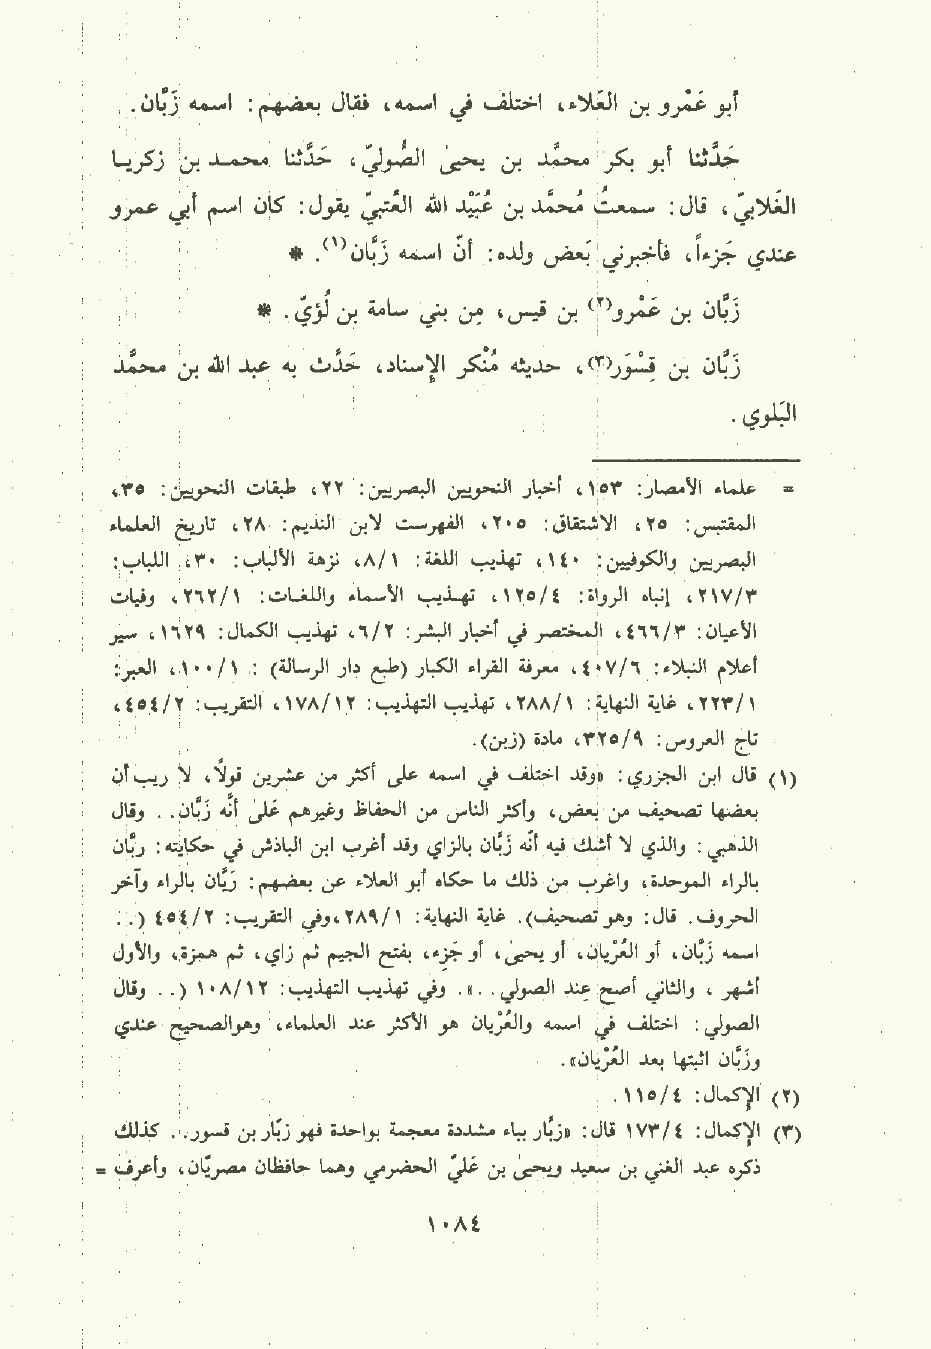 أبو عَمْرو بن العَلاء، اختلف في اسمه، فقال بعضهم: اسمه زَبَّان.
حَدَّثنا أبو بكر محمَّد بن يحيىٰ الصُّوليّ، حَدَّثنا محمـد بن زكريـا
الغَلابيّ، قال: سمعتُ مُحمَّد بن عُبَيْد الله العُتبيّ يقول: كان اسم أبي عمرو
عندي جَزءاً، فأخبرني بَعض ولده: أنّ اسمه زَبَّان(١). *
زَبَّان بن عَمْرو(٢) بن قيس، مِن بني سامة بن لُؤيّ. *
زَبَّان بن قِسْوَر(٣)، حديثه مُنْكر الإسناد، حَدَّث به عبد الله بن محمَّد
البَلوي.
= علماء الأمصار: ١٥٣، أخبار النحويين البصريين: ٢٢، طبقات النحويين: ٣٥،
المقتبس: ٢٥، الاشتقاق: ٢٠٥، الفهرست لابن النديم: ٢٨، تاريخ العلماء
البصريين والكوفيين: ١٤٠، تهذيب اللغة: ٨/١، نزهة الألباب: ٣٠، اللباب:
٢١٧/٣، إنباه الرواة: ١٢٥/٤، تهـذيب الأسماء واللغـات: ٢٦٢/١، وفيات
الأعيان: ٤٦٦/٣، المختصر في أخبار البشر: ٦/٢، تهذيب الكمال: ١٦٢٩، سير
أعلام النبلاء: ٤٠٧/٦، معرفة القراء الكبار (طبع دار الرسالة) : ١٠٠/١، العبر:
٢٢٣/١، غاية النهاية: ٢٨٨/١، تهذيب التهذيب: ١٧٨/١٢، التقريب: ٤٥٤/٢،
تاج العروس: ٣٢٥/٩، مادة (زبن).
(١) قال ابن الجزري: «وقد اختلف في اسمه على أكثر من عشرين قولاً، لا ريب أن
بعضها تصحيف من بعض، وأكثر الناس من الحفاظ وغيرهم عَلىٰ أنَّه زَبَّان. . وقال
الذهبي: والذي لا أشك فيه أنَّه زَبَّان بالزاي وقد أغرب ابن الباذش في حكايته: ربَّان
بالراء الموحدة، واغرب من ذلك ما حكاه أبو العلاء عن بعضهم: رَيَّان بالراء وآخر
الحروف. قال: وهو تصحيف). غاية النهاية: ٢٨٩/١، وفي التقريب: ٤٥٤/٢ (. .
اسمه زَبَّان، أو العُرْيان، أو يحيىٰ، أو جَزِء، بفتح الجيم ثم زاي، ثم همزة، والأول
أشهر ، والثاني أصح عند الصولي. .». وفي تهذيب التهذيب: ١٠٨/١٢ (. . وقال
الصولي: اختلف في اسمه والعُرْيان هو أكثر عند العلماء، وهوالصحيح عندي
وزَبَّان اثبتها بعد العُرْيان».
(٢) الإكمال: ١١٥/٤.
(٣) الإكمال: ١٧٣/٤ قال: «زبَّار بباء مشددة معجمة بواحدة فهو زبَّار بن قسور. . كذلك
ذكره عبد الغني بن سعيد ويحيىٰ بن عَليّ الحضرمي وهما حافظان مصريّان، وأعرف =
١٠٨٤